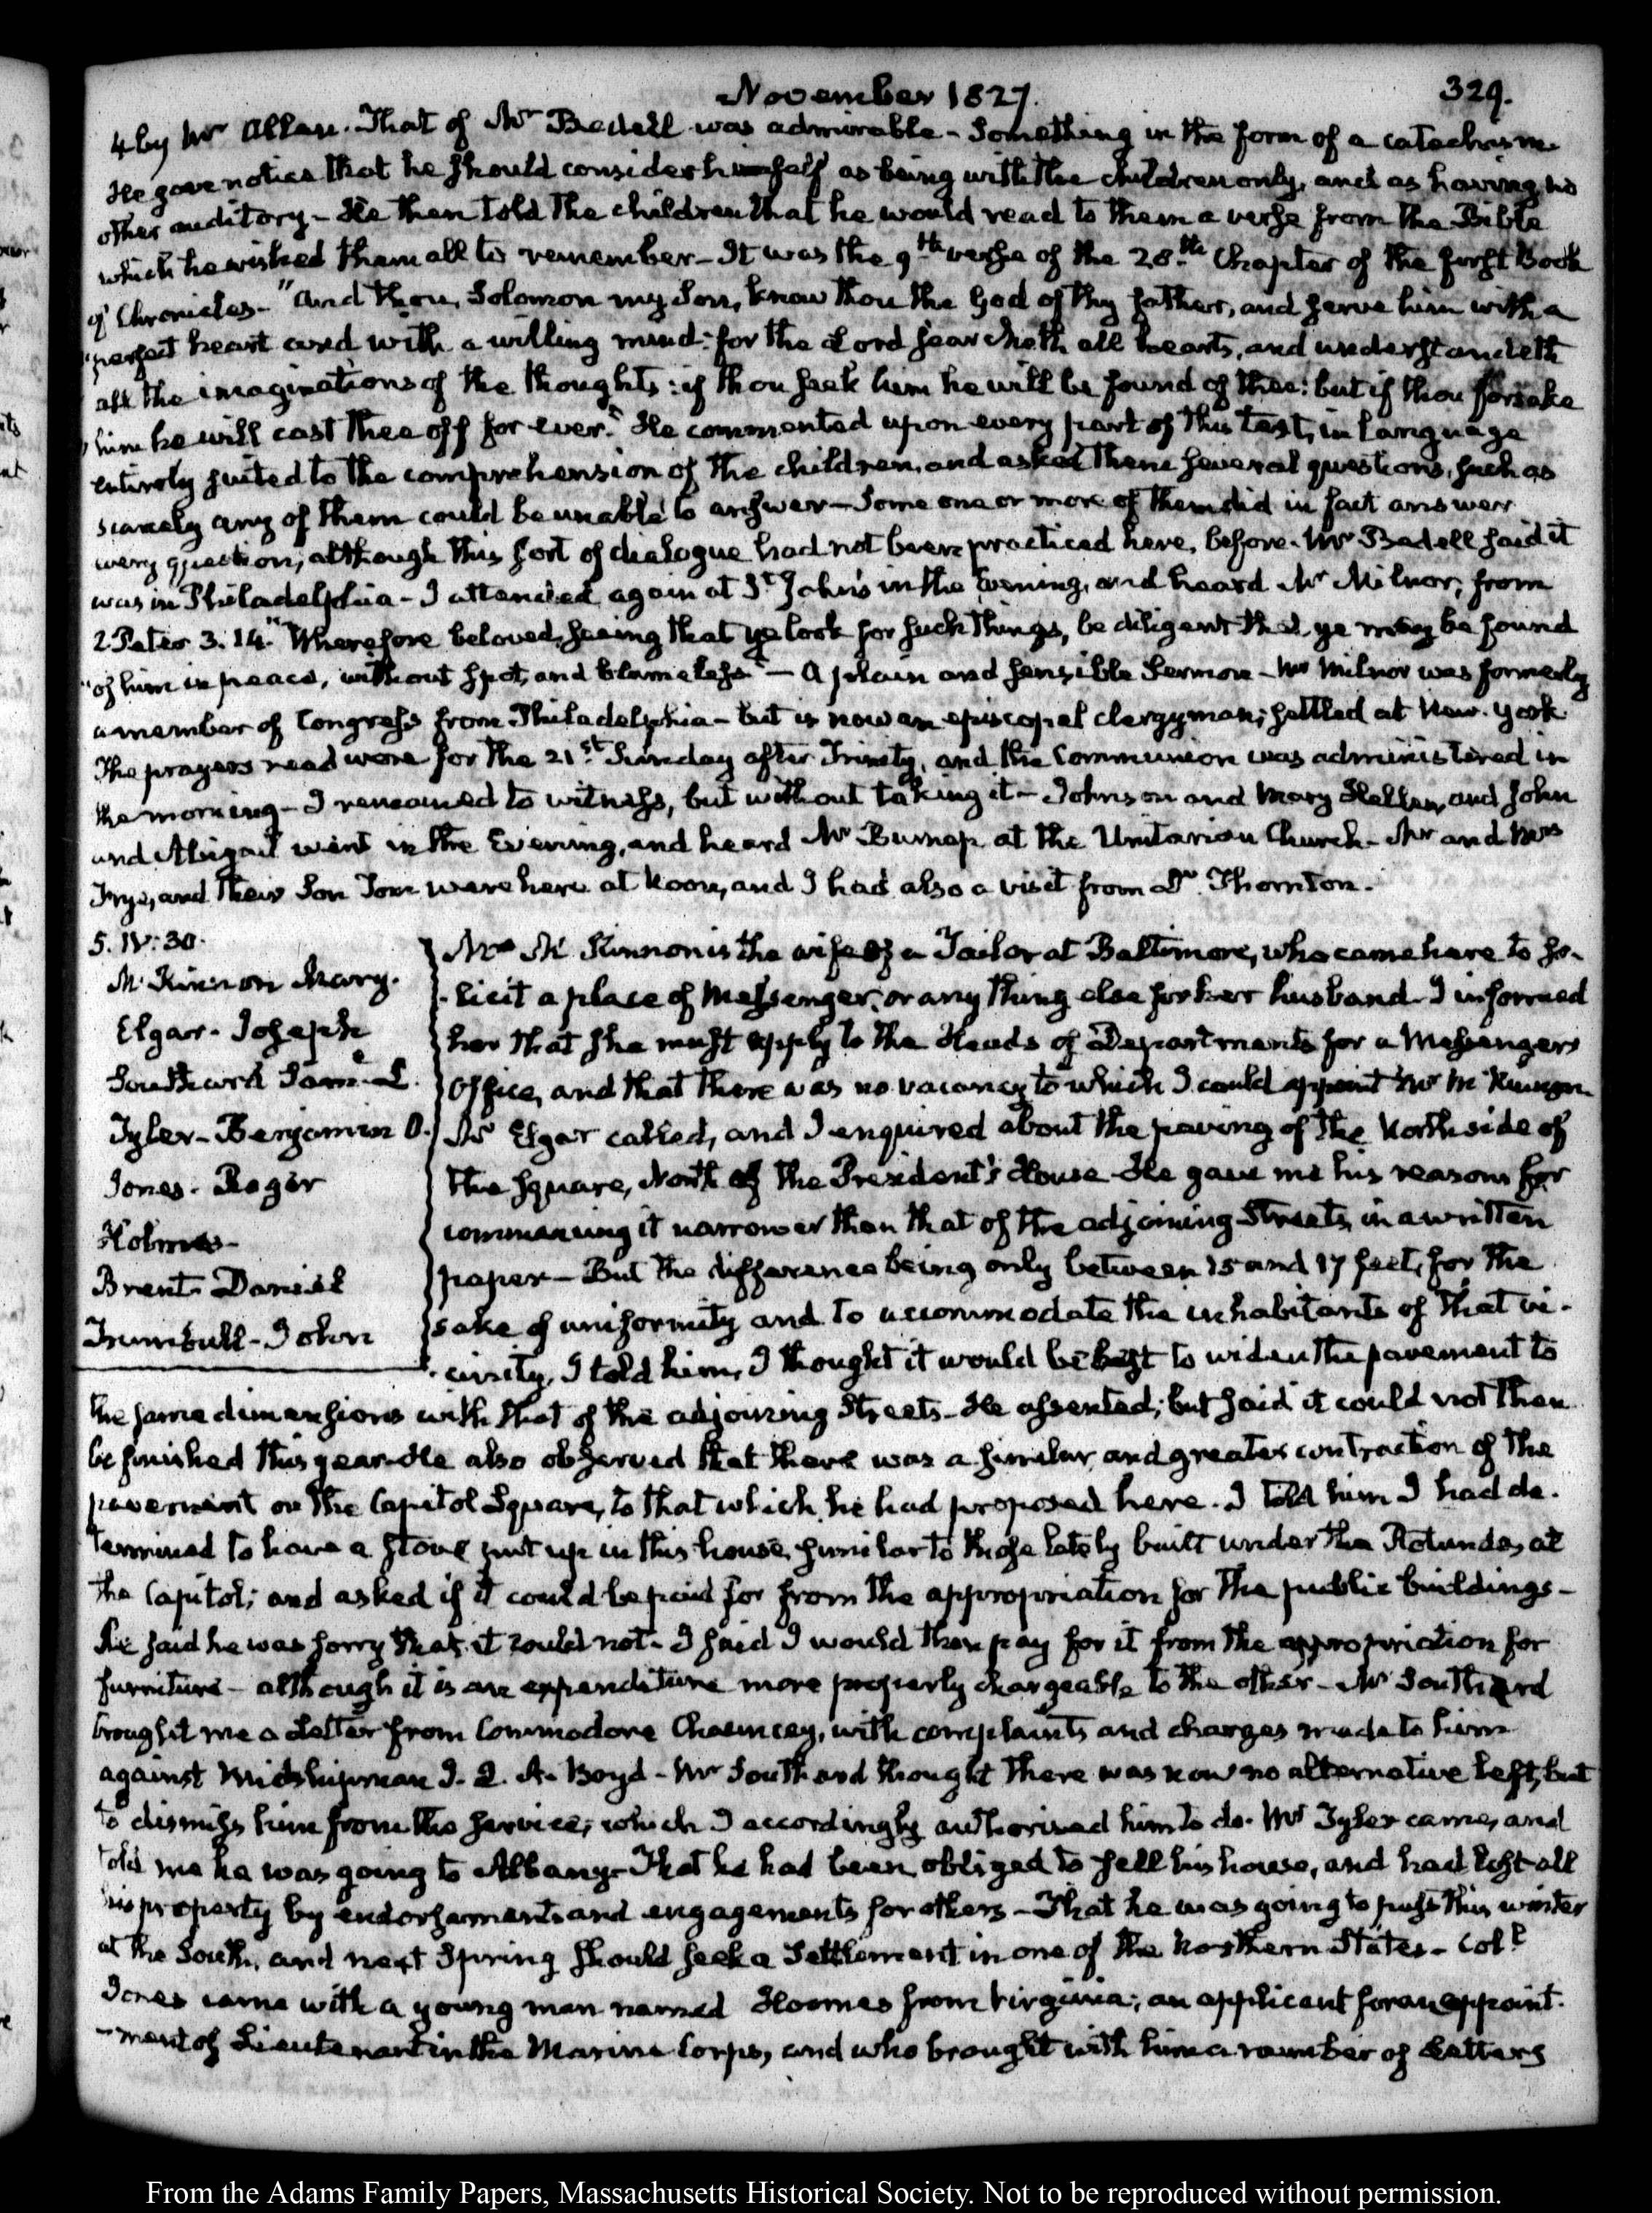 November 1827.
329.
4 by Mr Allan. That of Mr Bedell was admirable - Something in the form of a catechism
He gave notice that he should consider himself as being with the children only, and as having no
other auditory - He then told the children that he would read to them a verse from the Bible
which he wished them all to remember - It was the 9th verse of the 28th Chapter of the first Book
of Chronicles - "And thou, Solomon my Son, know thou the God of thy father, and serve him with a
"perfect heart and with a willing mind: for the Lord searcheth all hearts, and understandeth
all the imaginations of the thoughts: if thou seek him he will be found of thee: but if thou forsake
"him he will cast thee off for ever." He commented upon every part of this text, in language
entirely suited to the comprehension of the children, and asked them several questions, such as
scarcely any of them could be unable to answer - Some one or more of them did in fact answer
every question; although this sort of dialogue had not been practiced here, before. Mr Bedell said it
was in Philadelphia - I attended again at St. John's in the Evening, and heard Mr Milnor, from
2 Peter 3. 14. "Wherefore beloved, seeing that ye look for such things, be diligent that ye may be found
"of him in peace, without spot, and blameless" - A plain and sensible Sermon - Mr Milnor was formerly
a member of Congress from Philadelphia - but is now an episcopal clergyman; settled at New-York
The prayers read were for the 21st Sunday after Trinity, and the Communion was administered in
the morning - I remained to witness, but without taking it - Johnson and Mary Hellen, and John
and Abigail went in the Evening, and heard Mr Burnap at the Unitarian Church - Mr and Mrs
Frye, and their Son Tom were here at Noon, and I had also a visit from Dr. Thornton.
5. IV: 30.
McKinnon Mary.
Elgar - Joseph
Southard Saml. L.
Tyler - Benjamin O.
Jones - Roger
Holmes -
Brent - Daniel
Trumbull - John
Mrs McKinnon is the wife of a Tailor at Baltimore, who came here to so-
-licit a place of Messenger, or any thing else for her husband - I informed
her that she must apply to the Heads of Departments for a Messengers
Office, and that there was no vacancy to which I could appoint Mr McKinnon.
Mr Elgar called, and I enquired about the paving of the North side of
the Square, North of the President's House - He gave me his reasons for
commencing it narrower than that of the adjoining Streets, in a written
paper - But the difference being only between 15 and 17 feet, for the
sake of uniformity and to accommodate the inhabitants of that vi-
-cinity, I told him, I thought it would be best to widen the pavement to
the same dimensions with that of the adjoining Streets - He assented; but said it could not then
be finished this year - He also observed that there was a similar and greater contraction of the
pavement on the Capitol Square, to that which he had proposed here. I told him I had de-
termined to have a stove put up in this house, similar to those lately built under the Rotunda, at
the Capitol; and asked if it could be paid for from the appropriation for the public buildings -
He said he was sorry that it could not - I said I would then pay for it from the appropriation for
furniture - although it is an expenditure more properly chargeable to the other - Mr Southard
brought me a Letter from Commodore Chauncey, with complaints and charges made to him
against Midshipman J. Q. A. Boyd - Mr Southard thought there was now no alternative left, but
to dismiss him from the service; which I accordingly authorised him to do. Mr Tyler came, and
told me he was going to Albany - That he had been obliged to sell his house, and had lost all
his property by endorsements and engagements for others - That he was going to pass this winter
at the South, and next Spring should seek a Settlement in one of the Northern States - Coll.
Jones came with a young man named Holmes from Virginia; an applicant for an appoint-
-ment of Lieutenant in the Marine Corps, and who brought with him a number of Letters
From the Adams Family Papers, Massachusetts Historical Society. Not to be reproduced without permission.